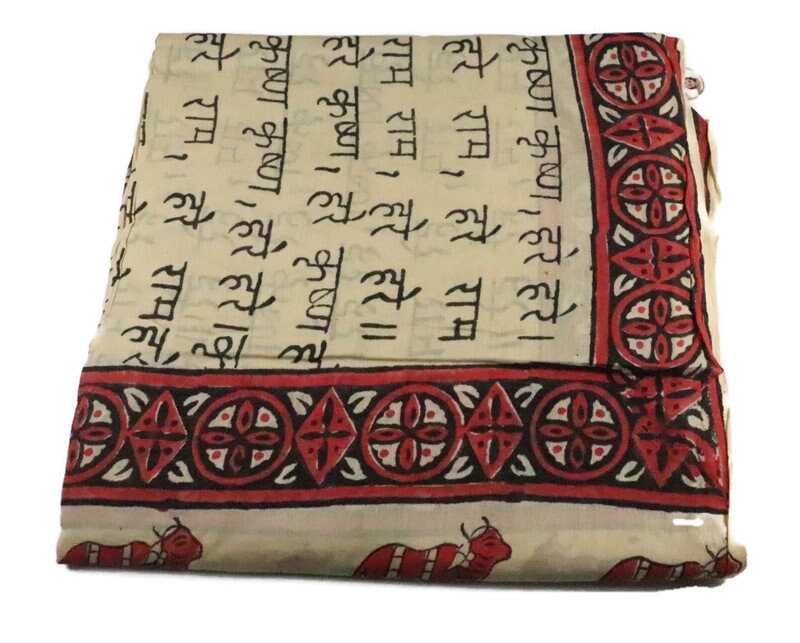 कृष्ण कृष्ण, हरे हरे।
हरे राम, हरे राम
राम राम, हरे हरे॥
हरे कृष्ण, हरे कृष्ण
कृष्ण कृष्ण, हरे हरे।
हरे राम, हरे राम